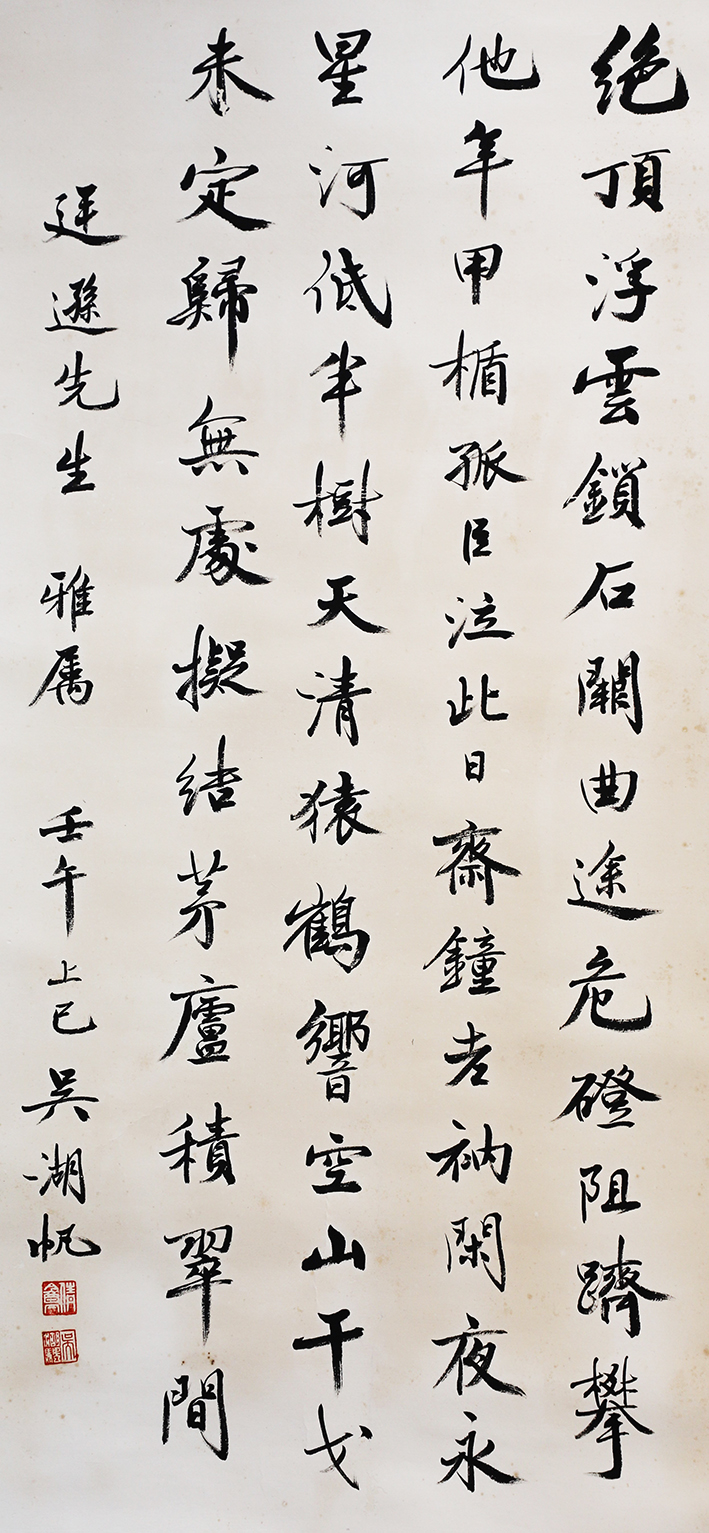 絕頂浮雲鎖石關曲途危磴阻躋攀
他年甲楯孤臣泣此日齋鐘老衲閑夜永
星河低半樹天清猿鶴響空山干戈
未定歸無處擬結茅廬積翠間
遜先生 雅屬 壬午上巳吳湖帆